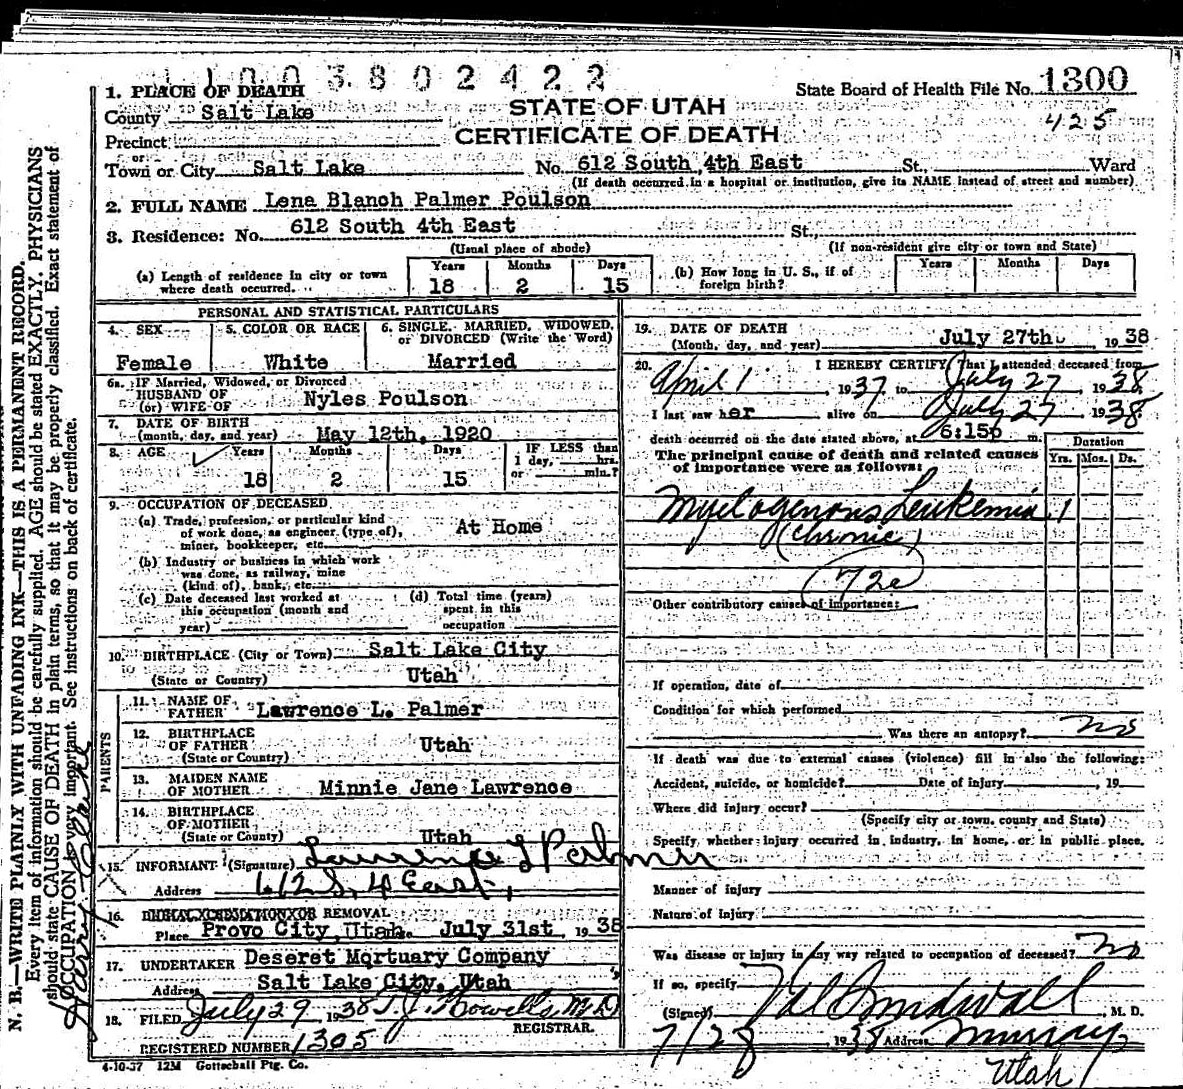 1003802422
1. PLACE OF DEATH
State Board of Health File No. 1300
County Salt Lake
STATE OF UTAH
425
Precinct
CERTIFICATE OF DEATH
or
Town or City Salt Lake No. 612 South 4th East St., Ward
(If death occurred in a hospital or institution, give its NAME instead of street and number)
2. FULL NAME Lena Blanch Palmer Poulson
3. Residence: No. 612 South 4th East St.
(Usual place of abode) (If non-resident give city or town and State)
(a) Length of residence in city or town where death occurred. Years 18 Months 2 Days 15
(b) How long in U. S., if of foreign birth? Years Months Days
PERSONAL AND STATISTICAL PARTICULARS
4. SEX Female
5. COLOR OR RACE White
6. SINGLE, MARRIED, WIDOWED, or DIVORCED (Write the Word) Married
6a. IF Married, Widowed, or Divorced
HUSBAND OF
(or) WIFE OF Nyles Poulson
7. DATE OF BIRTH
(month, day, and year) May 12th, 1920
8. AGE Years 18 Months 2 Days 15
IF LESS than
1 day, hrs.
or min.?
9. OCCUPATION OF DECEASED
(a) Trade, profession, or particular kind
of work done, as engineer (type of),
miner, bookkeeper, etc. At Home
(b) Industry or business in which work
was done, as railway, mine
(kind of), bank, etc.
(c) Date deceased last worked at
this occupation (month and
year)
(d) Total time (years)
spent in this
occupation
10. BIRTHPLACE (City or Town) Salt Lake City
(State or Country) Utah
PARENTS
11. NAME OF
FATHER Lawrence L. Palmer
12. BIRTHPLACE
OF FATHER
(State or Country) Utah
13. MAIDEN NAME
OF MOTHER Minnie Jane Lawrence
14. BIRTHPLACE
OF MOTHER
(State or County) Utah
15. INFORMANT (Signature) Lawrence L Palmer
Address 612 S. 4 East,
16. REMOVAL
Place Provo City, Utah. July 31st, 1938
17. UNDERTAKER Deseret Mortuary Company
Address Salt Lake City, Utah
18. FILED July 29 1938 T. J. Howells, M.D.
REGISTRAR.
REGISTERED NUMBER 1305
4-10-37 12M Gottschall Ptg. Co.
19. DATE OF DEATH
(Month, day, and year) July 27th 1938
20. I HEREBY CERTIFY, That I attended deceased from
April 1 1937 to July 27 1938
I last saw her alive on July 27 1938
death occurred on the date stated above, at 6:15p m.
The principal cause of death and related causes
of importance were as follows:
Duration
Yrs. Mos. Ds.
Myelogenous Leukemia 1
(Chronic)
72a
Other contributory causes of importance:
If operation, date of
Condition for which performed
Was there an autopsy? no
If death was due to external causes (violence) fill in also the following:
Accident, suicide, or homicide? Date of injury , 19
Where did injury occur?
(Specify city or town, county and State)
Specify whether injury occurred in industry, in home, or in public place.
Manner of injury
Nature of injury
Was disease or injury in any way related to occupation of deceased? no
If so, specify
(Signed) Val Sundwall , M. D.
7/28 1938 Address Murray
Utah
N. B.—WRITE PLAINLY WITH UNFADING INK—THIS IS A PERMANENT RECORD.
Every item of information should be carefully supplied. AGE should be stated EXACTLY. PHYSICIANS
should state CAUSE OF DEATH in plain terms, so that it may be properly classified. Exact statement of
OCCUPATION is very important. See instructions on back of certificate.
Harry Clark